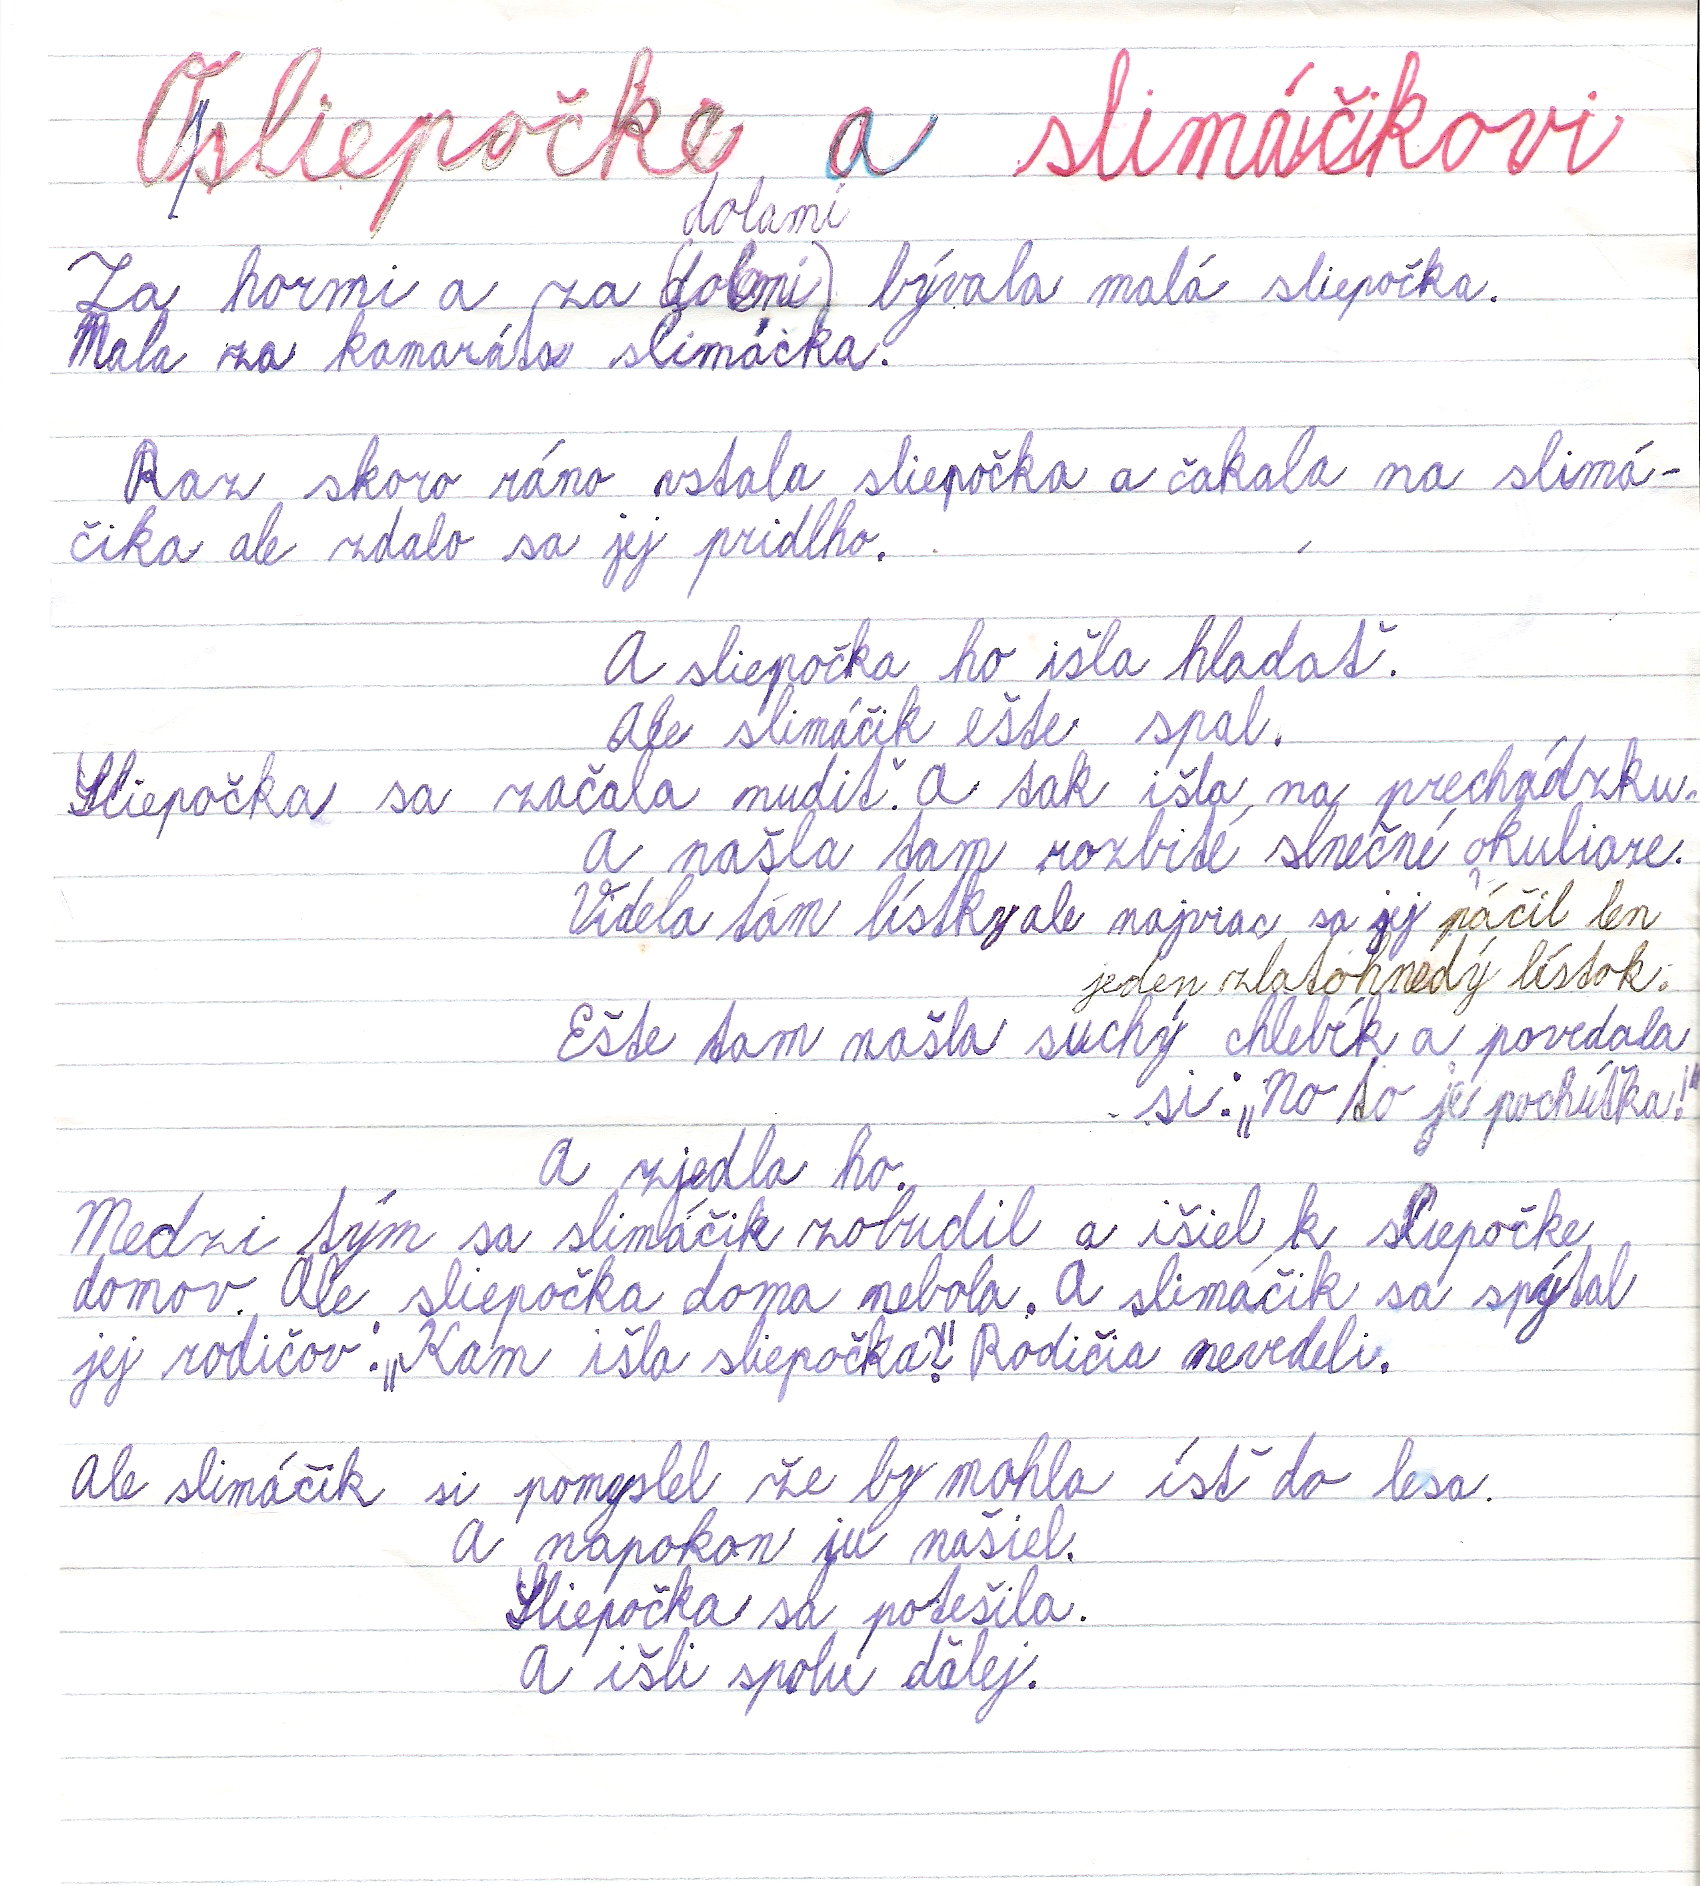 O sliepočke a slimáčikovi
dolami
Za hormi a za (dolami) bývala malá sliepočka.
Mala za kamaráta slimáčka.
Raz skoro ráno vstala sliepočka a čakala na slimá-
čika ale zdalo sa jej pridlho.
A sliepočka ho išla hladať.
Ale slimáčik ešte spal.
Sliepočka sa začala nudiť. A tak išla na prechádzku.
A našla tam rozbité slnečné okuliare.
Videla tam lístky ale najviac sa jej páčil len
jeden zlatohnedý lístok.
Ešte tam našla suchý chlebík a povedala
si: „No to je pochúťka!"
A zjedla ho.
Medzi tým sa slimáčik zobudil a išiel k sliepočke
domov. Ale sliepočka doma nebola. A slimáčik sa spýtal
jej rodičov: „Kam išla sliepočka?" Rodičia nevedeli.
Ale slimáčik si pomyslel že by mohla ísť do lesa.
A napokon ju našiel.
Sliepočka sa potešila.
A išli spolu ďalej.